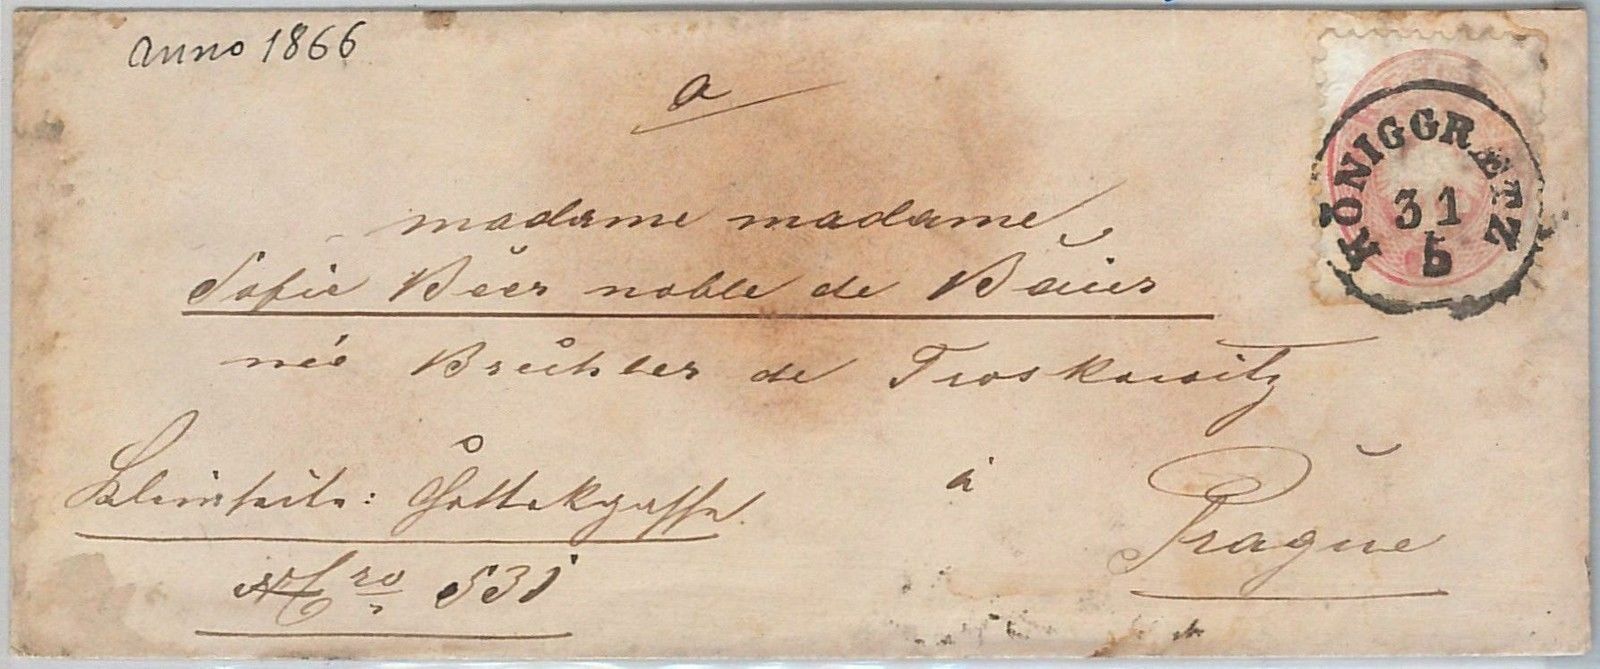 anno 1866
a
madame madame
Sofie Béer noble de Baier
née Brühler de Troskowitz
Kleinseite: Gottekgasse
à
Prague
Nro 531
KÖNIGGRÆTZ
31
5